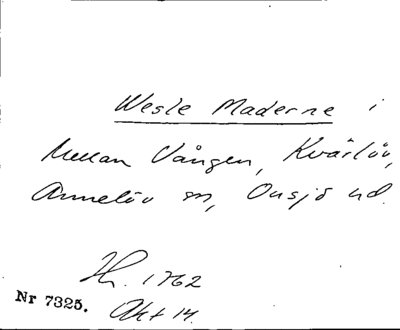 Wesle Maderne i
Mellan Vången, Kvärlöv,
Annelöv sn, Onsjö hd.
H. 1762
Nr 7325. Akt 14.